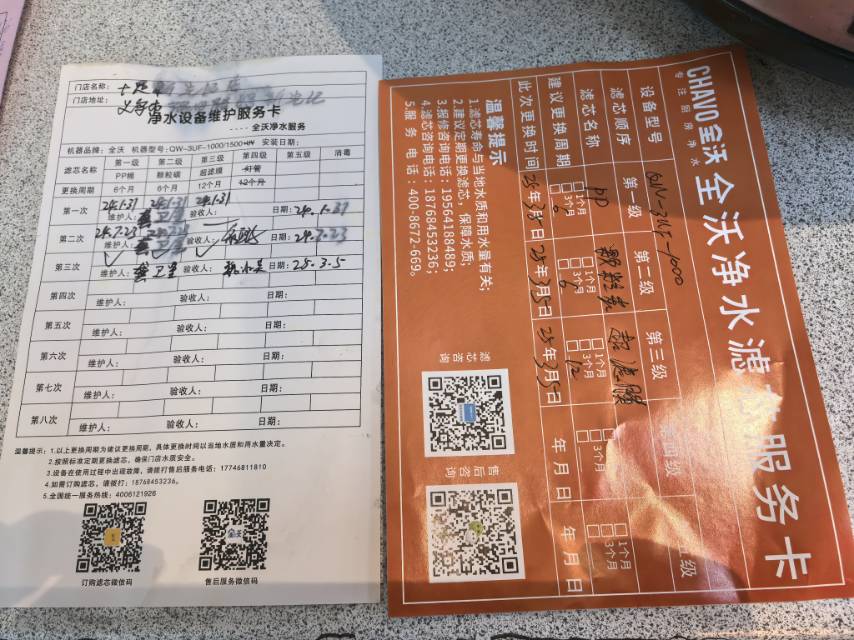 门店名称：
门店地址：
净水设备维护服务卡
----全沃净水服务
机器品牌：全沃 机器型号：QW-3UF-1000/1500+UV 安装日期：
滤芯名称 第一级 第二级 第三级 第四级 第五级 消毒
PP棉 颗粒碳 超滤膜 灯管
更换周期 6个月 6个月 12个月 12个月
第一次 24.1.31 24.1.31 24.1.31
维护人：龚卫星 验收人： 日期：24.1.31
第二次 24.7.23 24.7.23
维护人：龚卫星 验收人： 日期：24.7.23
第三次
维护人：龚卫星 验收人： 日期：25.3.5
第四次
维护人： 验收人： 日期：
第五次
维护人： 验收人： 日期：
第六次
维护人： 验收人： 日期：
第七次
维护人： 验收人： 日期：
第八次
维护人： 验收人： 日期：
温馨提示：1.以上更换周期为建议更换周期，具体更换时间以当地水质和用水量决定。
2.按照标准定期更换滤芯，确保门店水质安全。
3.设备在使用过程中出现故障，请拨打售后服务电话：17746811810
4.如需订购滤芯，请拨打：18768453236。
5.全国统一服务热线：4006121926
订购滤芯微信码 售后服务微信码
CHAVO全沃
专注厨房净水
全沃净水滤芯服务卡
设备型号 QW-3UF-1000
滤芯顺序 第一级 第二级 第三级 第四级 第五级
滤芯名称 PP 颗粒炭 超滤膜
建议更换周期 1个月 3个月 6 1个月 3个月 6 1个月 3个月 12 1个月 3个月 1个月 3个月
此次更换时间 25年3月5日 25年3月5日 25年3月5日 年 月 日 年 月 日
温馨提示
1.滤芯寿命与当地水质和用水量有关；
2.建议定期更换滤芯，保障水质；
3.报修咨询电话：19564188489；
4.滤芯咨询电话：18768453236；
5.服务电话：400-8672-669。
滤芯咨询
售后咨询